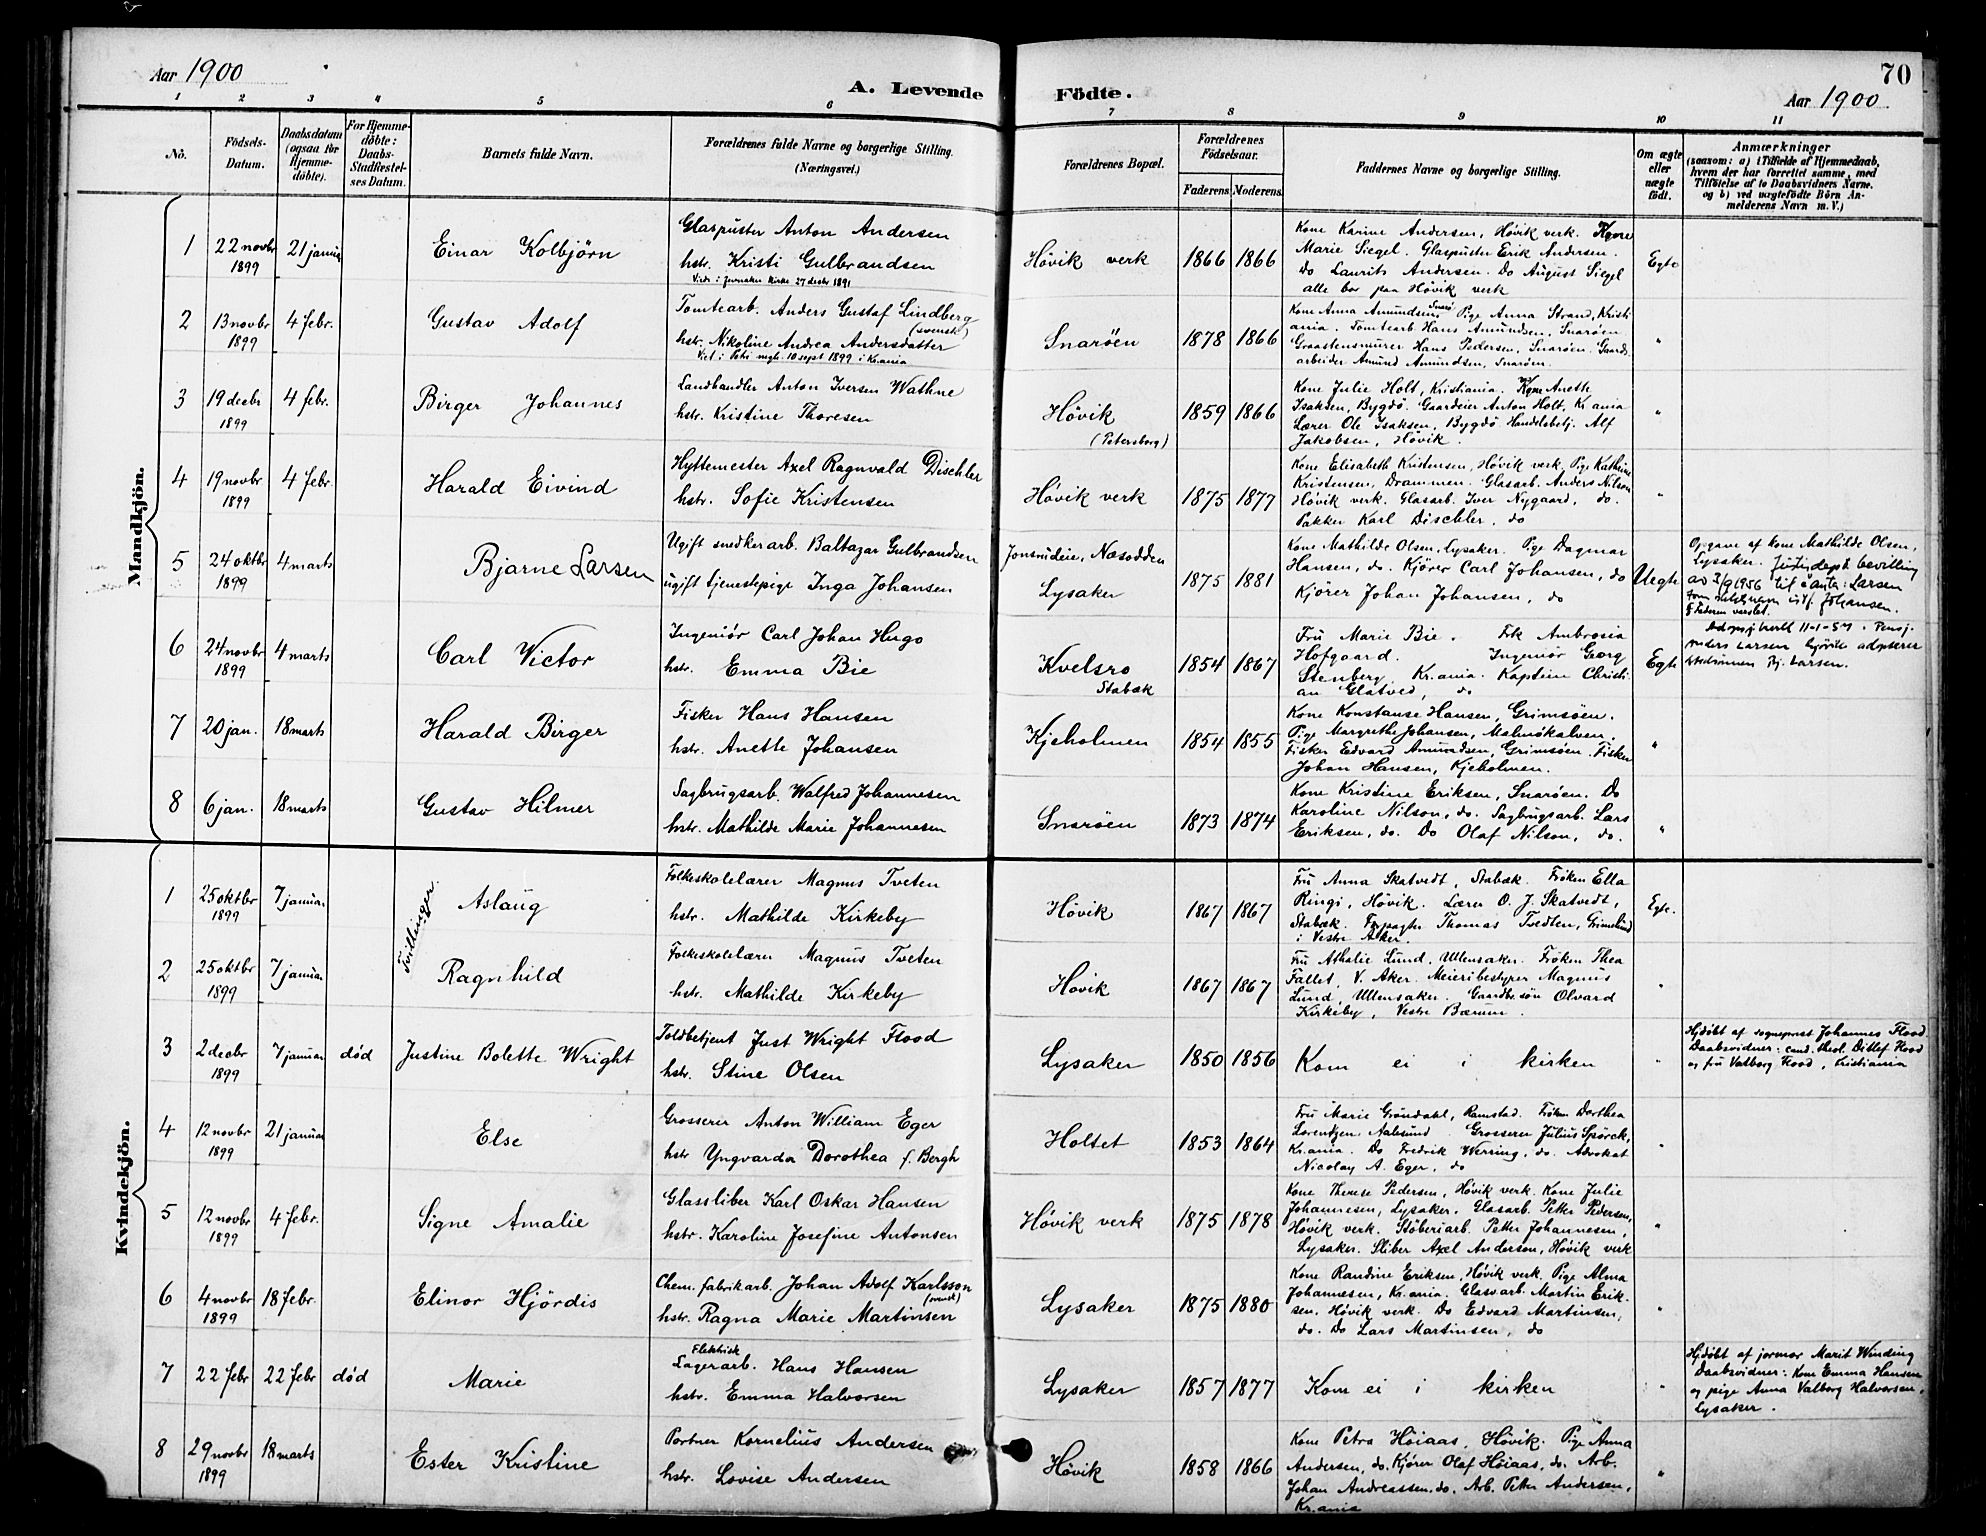 Aar 1900
A. Levende Födte.
70
Aar 1900
1 2 3 4 5 6 7 8 9 10 11
No.
Födsels-Datum.
Daabsdatum (ogsaa for Hjemmedöbte).
For Hjemmedöbte: Daabs-Stadfestelses Datum.
Barnets fulde Navn.
Forældrenes fulde Navne og borgerlige Stilling. (Næringsvei.)
Forældrenes Bopæl.
Forældrenes Födselsaar.
Faderens Moderens
Faddernes Navne og borgerlige Stilling.
Om ægte eller uægte født.
Anmærkninger
(saasom: a) i Tilfælde af Hjemmedaab, hvem der har forrettet samme, med Tilföielse af to Daabsvidners Navne, og b) ved uægtefödte Börn Anmelderens Navn m. V.)
Mandkjön.
1 22 novbr 1899 21 januar Einar Kolbjörn
Glaspuster Anton Andersen
hstr. Kristi Gulbrandsen
Viede i Jevnaker kirke 27 decbr 1891
Høvik verk 1866 1866
Kone Karine Andersen, Høvik verk. Kone
Marie Siegel. Glaspuster Erik Andersen.
Do Laurits Andersen. Do August Siegel
alle bor paa Høvik verk
Egte
2 13 novbr 1899 4 febr. Gustav Adolf
Tomtearb. Anders Gustaf Lindberg
(svensk)
hstr. Nikoline Andrea Andersdatter
Viet i Petri mgh. 10 sept 1899 i Krania
Snarøen 1878 1866
Kone Anna Amundsen, Snarö. Pige Anna Strand, Kristi
ania. Tomtearb Hans Amundsen, Snarøen
Graastensmurer Hans Pedersen, Snarøen. Gaards
arbeider Amund Amundsen, Snarøen.
"
3 19 decbr 1899 4 febr. Birger Johannes
Landhandler Anton Iversen Wathne
hstr. Kristine Thoresen
Høvik
(Petersborg)
1859 1866
Kone Julie Holt, Kristiania. Kone Anette
Isaksen, Bygdö. Gaardeier Anton Holt, Kr.ania
Lærer Ole Isaksen, Bygdö. Handelsbetj. Alf
Jakobsen, Høvik.
"
4 19 novbr 1899 4 febr. Harald Eivind
Hyttemester Axel Ragnvald Dischler
hstr. Sofie Kristensen
Høvik verk 1875 1877
Kone Elisabeth Kristensen, Høvik verk. Pige Kathrine
Kristensen, Drammen. Glasarb. Anders Nilson
Høvik verk. Glasarb. Iver Nygaard, do.
Pakker Karl Dischler, do
"
5 24 oktbr 1899 4 marts Bjarne Larsen
Ugift snedkerarb. Baltazar Gulbrandsen
ugift tjenestepige Inga Johansen
Jonsrudeie, Næsodden
Lysaker
1875 1881
Kone Mathilde Olsen, Lysaker. Pige Dagmar
Hansen, do. Kjører Carl Johansen, do
Kjører Johan Johansen, do
Uegte
Opgave af kone Mathilde Olsen,
Lysaker. Just.dept bevilling
av 3/9 1956 til å anta: Larsen
som slektsnavn istf. Johansen.
6 24 novbr 1899 4 marts Carl Victor
Ingeniör Carl Johan Hugo
hstr. Emma Bie
Kvelsro
Stabæk
1854 1867
Fru Marie Bie. Frk Ambrosia
Hofgaard. Ingeniör Georg
Stenberg, Kr.ania. Kaptein Christi
an Glatved, do
Egte
7 20 jan. 18 marts Harald Birger
Fisker Hans Hansen
hstr. Anette Johansen
Kjeholmen 1854 1855
Kone Konstanse Hansen, Grimsøen.
Pige Margrethe Johansen, Malmökalven.
Fisker Edvard Amundsen, Grimsøen. Fisker
Johan Hansen, Kjeholmen.
"
8 6 jan. 18 marts Gustav Hilmer
Sagbrugsarb. Walfred Johannesen
hstr. Mathilde Marie Johannesen
Snarøen 1873 1874
Kone Kristine Eriksen, Snarøen. Do
Karoline Nilson, do. Sagbrugsarb. Lars
Eriksen, do. Do Olaf Nilson, do.
"
Kvindekjön.
Tvillinger.
1 25 oktbr 1899 7 januar Aslaug
Folkeskolelærer Magnus Tveten
hstr. Mathilde Kirkeby
Høvik 1867 1867
Fru Anna Skatvedt, Stabæk. Frøken Ella
Ringi, Høvik. Lærer O. J. Skatvedt,
Stabæk. Forpagter Thomas Tvedten, Grimelund
i Vestre Aker.
Egte.
2 25 oktbr 1899 7 januar Ragnhild
Folkeskolelærer Magnus Tveten
hstr. Mathilde Kirkeby
Høvik 1867 1867
Fru Athalie Lund, Ullensaker. Frøken Thea
Fallet, V. Aker. Meieribestyrer Magnus
Lund, Ullensaker. Gaardbr.søn Olvard
Kirkeby, Vestre Bærum.
"
3 2 decbr 1899 7 januar død Justine Bolette Wright
Toldbetjent Just Wright Flood
hstr. Stine Olsen
Lysaker 1850 1856
Kom ei i kirken
"
Hjdøbt af sogneprest Johannes Flood
Daabsvidner: cand. theol. Ditlef Flood
og fru Valborg Flood, Kristiania
4 12 novbr 1899 21 januar Else
Grosserer Anton William Eger
hstr Yngvarda Dorothea f. Bergh
Holtet 1853 1864
Fru Marie Grøndahl, Ramstad. Frøken Dorthea
Lorentzen, Aalesund. Grosserer Julius Spörck,
Kr.ania. Do Fredrik Werring, do. Advokat
Nicolay A. Eger, do
"
5 12 novbr 1899 4 febr. Signe Amalie
Glassliber Karl Oskar Hansen
hstr. Karoline Josefine Antonsen
Høvik verk 1875 1878
Kone Therese Pedersen, Høvik verk. Kone Julie
Johannesen, Lysaker. Glasarb. Petter Pedersen,
Høvik verk. Støberiarb. Petter Johannesen,
Lysaker. Sliber Axel Anderson, Høvik verk
"
6 4 novbr 1899 18 febr. Elinor Hjördis
Chem. fabrikarb. Johan Adolf Karlsson
(svensk)
hstr. Ragna Marie Martinsen
Lysaker 1875 1880
Kone Randine Eriksen, Høvik verk. Pige Alma
Johannesen, Kr.ania. Glasarb. Martin Erik-
sen, Høvik verk. Do Edvard Martinsen,
do. Do Lars Martinsen, do
"
7 22 febr 22 febr død Marie
Elektrisk
Lagerarb. Hans Hansen
hstr. Emma Halvorsen
Lysaker 1857 1877
Kom ei i kirken
"
Hjdøbt af jormor Marit Winding
Daabsvidner: Kone Emma Hansen
og pige Anna Valborg Halvorsen,
Lysaker.
8 29 novbr 1899 18 marts Ester Kristine
Portner Kornelius Andersen
hstr. Lovise Andersen
Høvik 1858 1866
Kone Petra Høiaas, Høvik. Pige Anna
Andersen, do. Kjører Olaf Høiaas, do. Arb.
Johan Andreassen, do. Arb. Petter Andersen,
Kr.ania
"